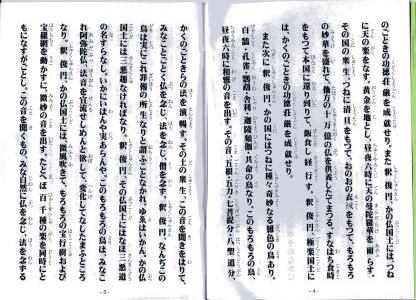 のごときの功徳荘厳を成就せり。
に天の楽をなす。黄金を地とし、昼夜六時に天の曼陀羅華を雨らす。
その国の衆生、つねに清旦をもつて、おのおの衣裓をもつて、もろもろ
の妙華を盛れて、他方の十万億の仏を供養したてまつる。すなはち食時
をもつて本国に還り到りて、飯食し経行す。釈 俊円、極楽国土に
は、かくのごときの功徳荘厳を成就せり。
また次に 釈 俊円、かの国にはつねに種々奇妙なる雑色の鳥あり。
白鵠・孔雀・鸚鵡・舎利・迦陵頻伽・共命の鳥なり。このもろもろの鳥、
昼夜六時に和雅の音を出す。その音、五根・五力・七菩提分・八聖道分、
- 4 -
かくのごときらの法を演暢す。その土の衆生、この音を聞きをはりて、
みなことごとく仏を念じ、法を念じ、僧を念ず。釈 俊円、なんぢこの
鳥は実にこれ罪報の所生なりと謂ふことなかれ。ゆゑはいかん。かの仏
国土には三悪趣なければなり。釈 俊円、その仏国土にはなほ三悪道
の名すらなし。いかにいはんや実あらんや。このもろもろの鳥は、みなこ
れ阿弥陀仏、法音を宣流せしめんと欲して、変化してなしたまふところ
なり。釈 俊円、かの仏国土には、微風吹きて、もろもろの宝行樹および
宝羅網を動かすに、微妙の音を出す。たとへば百千種の楽を同時にと
もになすがごとし。この音を聞くもの、みな自然に仏を念じ、法を念ずる
- 5 -